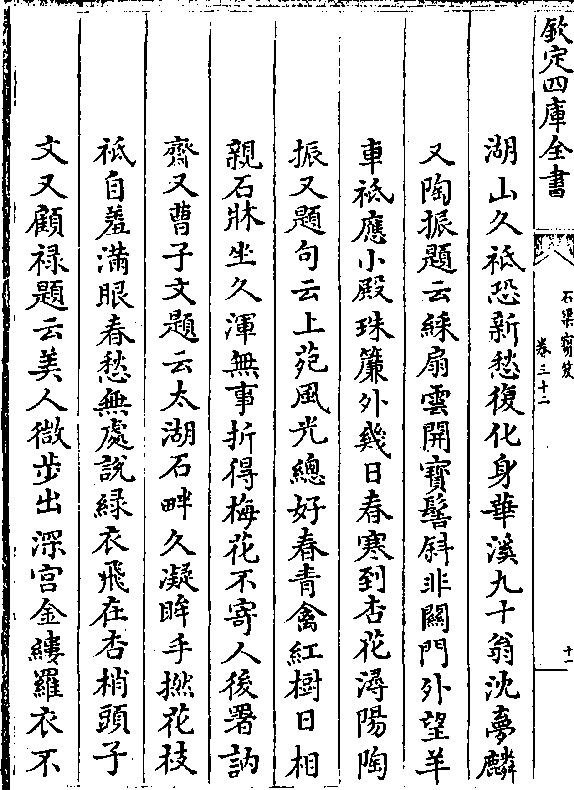 欽定四庫全書
石渠寶笈
卷三十二
十一
湖山久祗恐新愁復化身華溪九十翁沈夢麟
又陶振題云綵扇雲開寶髻斜非關門外望羊
車祗應小殿珠簾外幾日春寒到杏花潯陽陶
振又題句云上苑風光總好春青禽紅樹日相
親石牀坐久渾無事折得梅花不寄人後署訥
齋又曹子文題云太湖石畔久凝眸手撚花枝
祗自羞滿眼春愁無處說緑衣飛在杏梢頭子
文又顧禄題云美人微步出深宫金縷羅衣不